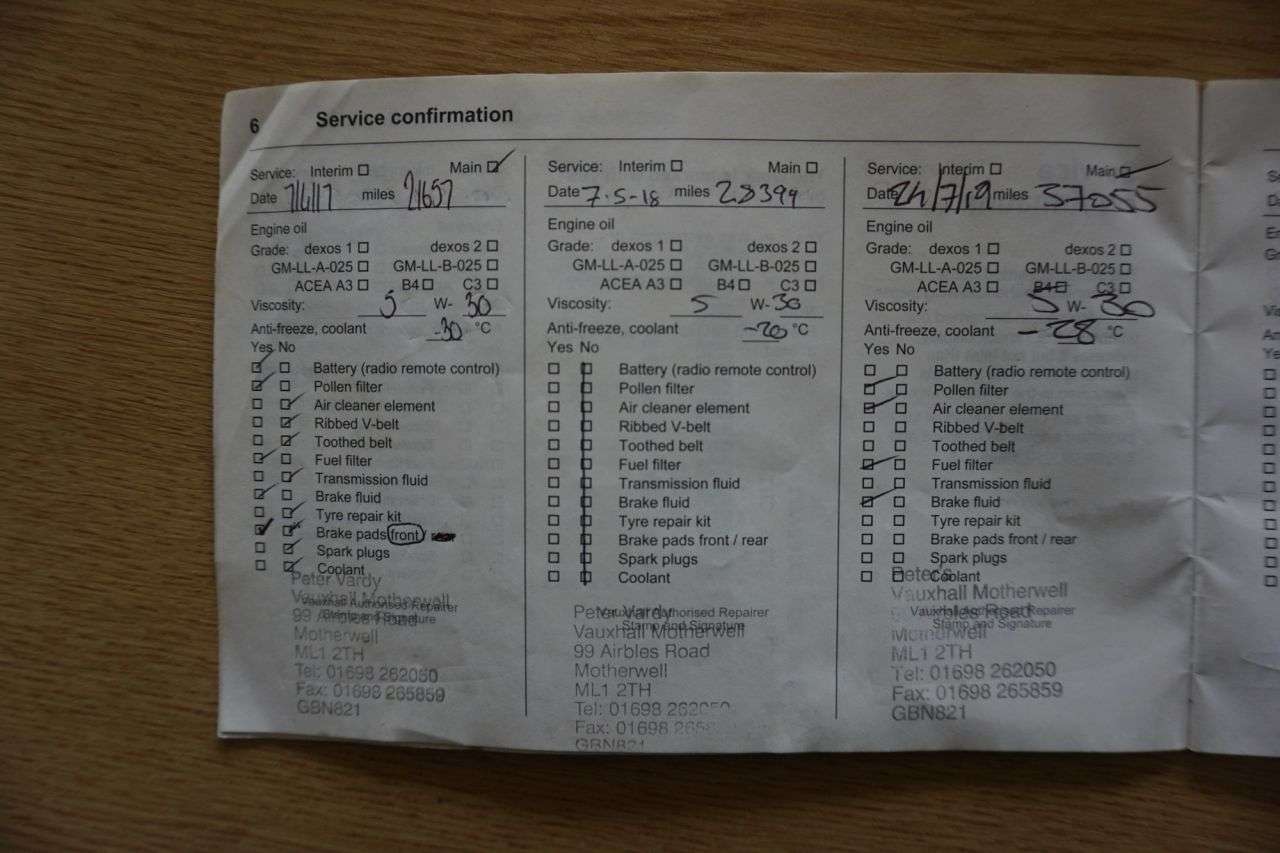 6 Service confirmation
Service: Interim ☐ Main ☑
Date 7/4/17 miles 21657
Engine oil
Grade: dexos 1 ☐ dexos 2 ☐
GM-LL-A-025 ☐ GM-LL-B-025 ☐
ACEA A3 ☐ B4 ☐ C3 ☐
Viscosity: 5 W- 30
Anti-freeze, coolant -30 °C
Yes No
☑ ☐ Battery (radio remote control)
☑ ☐ Pollen filter
☐ ☑ Air cleaner element
☐ ☑ Ribbed V-belt
☐ ☑ Toothed belt
☑ ☐ Fuel filter
☐ ☑ Transmission fluid
☑ ☐ Brake fluid
☐ ☑ Tyre repair kit
☑ ☑ Brake pads front /
☐ ☑ Spark plugs
☐ ☑ Coolant
Peter Vardy
Vauxhall Motherwell
Vauxhall Authorised Repairer
99 Airbles Road
Stamp and Signature
Motherwell
ML1 2TH
Tel: 01698 262050
Fax: 01698 265859
GBN821
Service: Interim ☐ Main ☐
Date 7.5-18 miles 28399
Engine oil
Grade: dexos 1 ☐ dexos 2 ☐
GM-LL-A-025 ☐ GM-LL-B-025 ☐
ACEA A3 ☐ B4 ☐ C3 ☐
Viscosity: 5 W- 30
Anti-freeze, coolant -20 °C
Yes No
☐ ☐ Battery (radio remote control)
☐ ☐ Pollen filter
☐ ☐ Air cleaner element
☐ ☐ Ribbed V-belt
☐ ☐ Toothed belt
☐ ☐ Fuel filter
☐ ☐ Transmission fluid
☐ ☐ Brake fluid
☐ ☐ Tyre repair kit
☐ ☐ Brake pads front / rear
☐ ☐ Spark plugs
☐ ☐ Coolant
Peter Vardy
Vauxhall Authorised Repairer
Stamp and Signature
Vauxhall Motherwell
99 Airbles Road
Motherwell
ML1 2TH
Tel: 01698 262050
Fax: 01698 265
GBN821
Service: Interim ☐ Main ☑
Date 24/7/19 miles 37055
Engine oil
Grade: dexos 1 ☐ dexos 2 ☐
GM-LL-A-025 ☐ GM-LL-B-025 ☐
ACEA A3 ☐ B4 ☐ C3 ☐
Viscosity: 5 W- 30
Anti-freeze, coolant -28 °C
Yes No
☐ ☐ Battery (radio remote control)
☑ ☐ Pollen filter
☑ ☐ Air cleaner element
☐ ☐ Ribbed V-belt
☐ ☐ Toothed belt
☑ ☐ Fuel filter
☐ ☐ Transmission fluid
☑ ☐ Brake fluid
☐ ☐ Tyre repair kit
☐ ☐ Brake pads front / rear
☐ ☐ Spark plugs
☐ ☐ Coolant
Vauxhall Motherwell
Vauxhall Authorised Repairer
Road
Stamp and Signature
Motherwell
ML1 2TH
Tel: 01698 262050
Fax: 01698 265859
GBN821